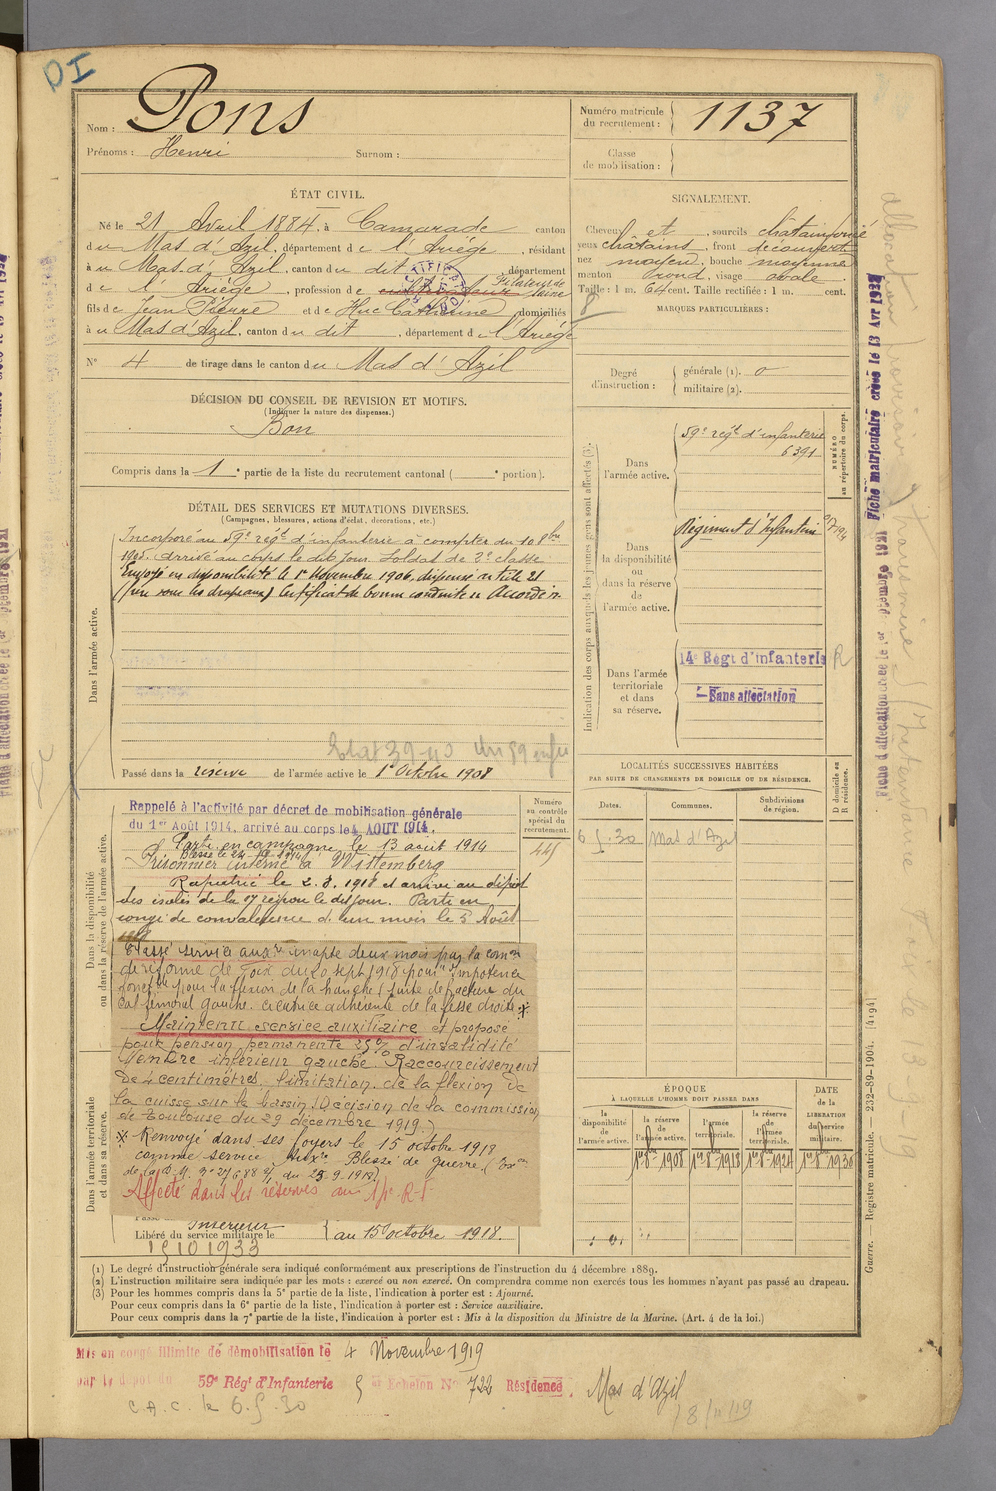 DI
Nom : Pons
Prénoms : Henri Surnom :
Numéro matricule du recrutement : 1137
Classe de mobilisation :
ÉTAT CIVIL.
Né le 21 Avril 1884, à Camarade canton
du Mas d'Azil, département de l'Ariège, résidant
à u Mas d'Azil, canton du dit, département
d e l'Ariège, profession de cultivateur Filateur de laine
fils de Jean Pierre et de Huc Catherine, domiciliés
à u Mas d'Azil, canton du dit, département d l'Ariège
N° 4 de tirage dans le canton du Mas d'Azil
SIGNALEMENT.
Cheveux et, sourcils châtain foncé
yeux châtains, front découvert
nez moyen, bouche moyenne
menton rond, visage ovale
Taille : 1 m. 64 cent. Taille rectifiée : 1 m. cent.
MARQUES PARTICULIÈRES :
8
Degré d'instruction : générale (1). 0
militaire (2).
DÉCISION DU CONSEIL DE REVISION ET MOTIFS.
(Indiquer la nature des dispenses.)
Bon
Compris dans la 1e partie de la liste du recrutement cantonal ( e portion).
DÉTAIL DES SERVICES ET MUTATIONS DIVERSES.
(Campagnes, blessures, actions d'éclat, décorations, etc.)
Dans l'armée active.
Incorporé au 59e régt d'infanterie à compter du 10 8bre
1905. Arrivé au corps le dit jour. Soldat de 2e classe
Envoyé en disponibilité le 1er Novembre 1906, dispensé article 21
(frère sous les drapeaux) Certificat de bonne conduite Accordé
Etat 39-40 du 59 enfie
Passé dans la réserve de l'armée active le 1er Octobre 1908
Indication des corps auxquels les jeunes gens sont affectés (3).
NUMÉRO au répertoire du corps.
Dans l'armée active.
59e régt d'infanterie
6391
Dans la disponibilité ou dans la réserve de l'armée active.
Régiment d'Infanterie
Dans l'armée territoriale et dans sa réserve.
14e Régt d'infanterie R
Sans affectation
LOCALITÉS SUCCESSIVES HABITÉES
PAR SUITE DE CHANGEMENTS DE DOMICILE OU DE RÉSIDENCE.
Dates. Communes. Subdivisions de région. D domicile ou R résidence.
6.5.30 Mas d'Azil
Numéro au contrôle spécial du recrutement.
445
Dans la disponibilité ou dans la réserve de l'armée active.
Rappelé à l'activité par décret de mobilisation générale
du 1er Août 1914, arrivé au corps le 4 AOUT 1914.
Parti en campagne le 13 août 1914
Blessé le 22
Prisonnier interné à Wittemberg
Rapatrié le 2.8.1918 et arrivé au dépôt
des isolés de la 17 région le dit jour. Parti en
congé de convalescence de un mois le 5 Août
1918
Classé service auxre inapte deux mois par la comon
de réforme de Foix du 20 sept 1918 pour "impotence
fonclle pour la flexion de la hanche (suite de fracture du
col fémoral gauche. cicatrice adhérente de la fesse droite ※
Maintenu service auxiliaire et proposé
pour pension permanente 25% d'invalidité
Membre inférieur gauche. Raccourcissement
de 4 centimètres, limitation de la flexion de
la cuisse sur le bassin (Décision de la commission
de Toulouse du 29 décembre 1919.)
※ Renvoyé dans ses foyers le 15 octobre 1918
comme service auxre Blessé de guerre
du 25-9-1918)
Affecté dans les réserves au 14e R.I.
Dans l'armée territoriale et dans sa réserve.
Intérieur
Libéré du service militaire le au 15 octobre 1918.
15 10 1933
ÉPOQUE
À LAQUELLE L'HOMME DOIT PASSER DANS
la disponibilité de l'armée active. la réserve de l'armée active. l'armée territoriale. la réserve de l'armée territoriale. DATE de la LIBÉRATION du service militaire.
1er 8bre 1908 1er 8bre 1918 1er 8bre 1924 1er 8bre 1930
(1) Le degré d'instruction générale sera indiqué conformément aux prescriptions de l'instruction du 4 décembre 1889.
(2) L'instruction militaire sera indiquée par les mots : exercé ou non exercé. On comprendra comme non exercés tous les hommes n'ayant pas passé au drapeau.
(3) Pour les hommes compris dans la 5e partie de la liste, l'indication à porter est : Ajourné.
Pour ceux compris dans la 6e partie de la liste, l'indication à porter est : Service auxiliaire.
Pour ceux compris dans la 7e partie de la liste, l'indication à porter est : Mis à la disposition du Ministre de la Marine. (Art. 4 de la loi.)
Mis en congé illimité de démobilisation le 4 Novembre 1919
par le dépôt du 59e Régt d'Infanterie 5e Echelon N° 722 Résidence. Mas d'Azil
C.A.C. le 6.5.30
18/11/19
Guerre. — Registre matricule. — 232-89-1904. (4194)
Fiche matriculaire créée le 13 Avr 1922
Fiche d'affectation créée le 1er Septembre 1921